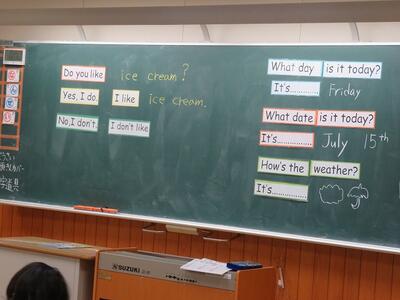 Do you like ice cream?
Yes, I do. I like ice cream.
No, I don't. I don't like
What day is it today?
It's.......... Friday
What date is it today?
It's.......... July 15th
How's the weather?
It's..........
SUZUKI